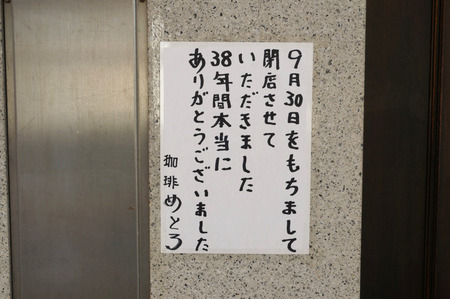 9月30日をもちまして
閉店させて
いただきました
38年間本当に
ありがとうございました
珈琲めとろ